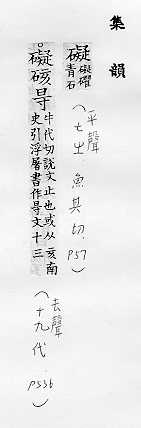 集韻
礙 礙
青石
(平聲 七之 魚其切. P57)
○礙硋㝵 牛代切說文止也或从亥南
史引浮屠書作㝵文十三
(去聲 十九代. P536)